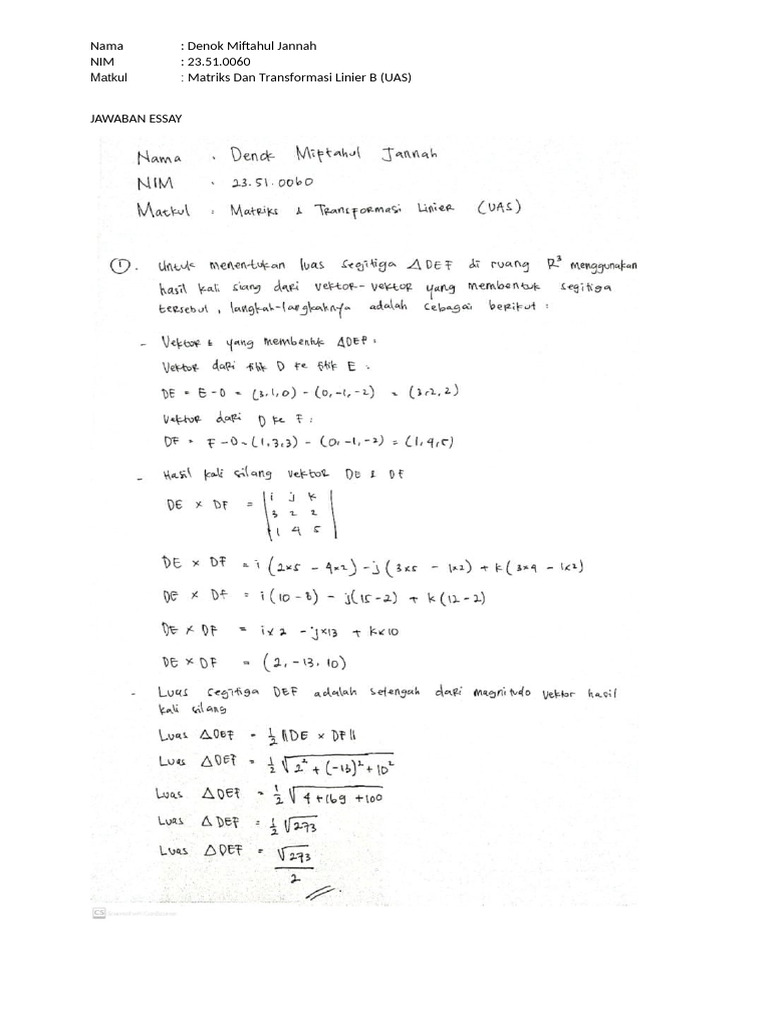 Nama : Denok Miftahul Jannah
NIM : 23.51.0060
Matkul : Matriks Dan Transformasi Linier B (UAS)
JAWABAN ESSAY
Nama : Denok Miftahul Jannah
NIM : 23.51.0060
Matkul : Matriks & Transformasi Linier (UAS)
①. Untuk menentukan luas segitiga △DEF di ruang R³ menggunakan
hasil kali siang dari vektor-vektor yang membentuk segitiga
tersebut, langkah-langkahnya adalah sebagai berikut :
- Vektor & yang membentuk △DEF :
Vektor dari titik D ke titik E :
DE = E - D = (3,1,0) - (0,-1,-2) = (3,2,2)
Vektor dari D ke F :
DF = F - D = (1,3,3) - (0,-1,-2) = (1,4,5)
- Hasil kali silang vektor DE & DF
DE × DF = | i j k |
| 3 2 2 |
| 1 4 5 |
DE × DF = i (2×5 - 4×2) - j (3×5 - 1×2) + k (3×4 - 1×2)
DE × DF = i (10 - 8) - j (15 - 2) + k (12 - 2)
DE × DF = i×2 - j×13 + k×10
DE × DF = (2, -13, 10)
- Luas segitiga DEF adalah setengah dari magnitudo vektor hasil
kali silang
Luas △DEF = ½ ||DE × DF||
Luas △DEF = ½ √(2² + (-13)² + 10²)
Luas △DEF = ½ √(4 + 169 + 100)
Luas △DEF = ½ √273
Luas △DEF = √273
2
CS